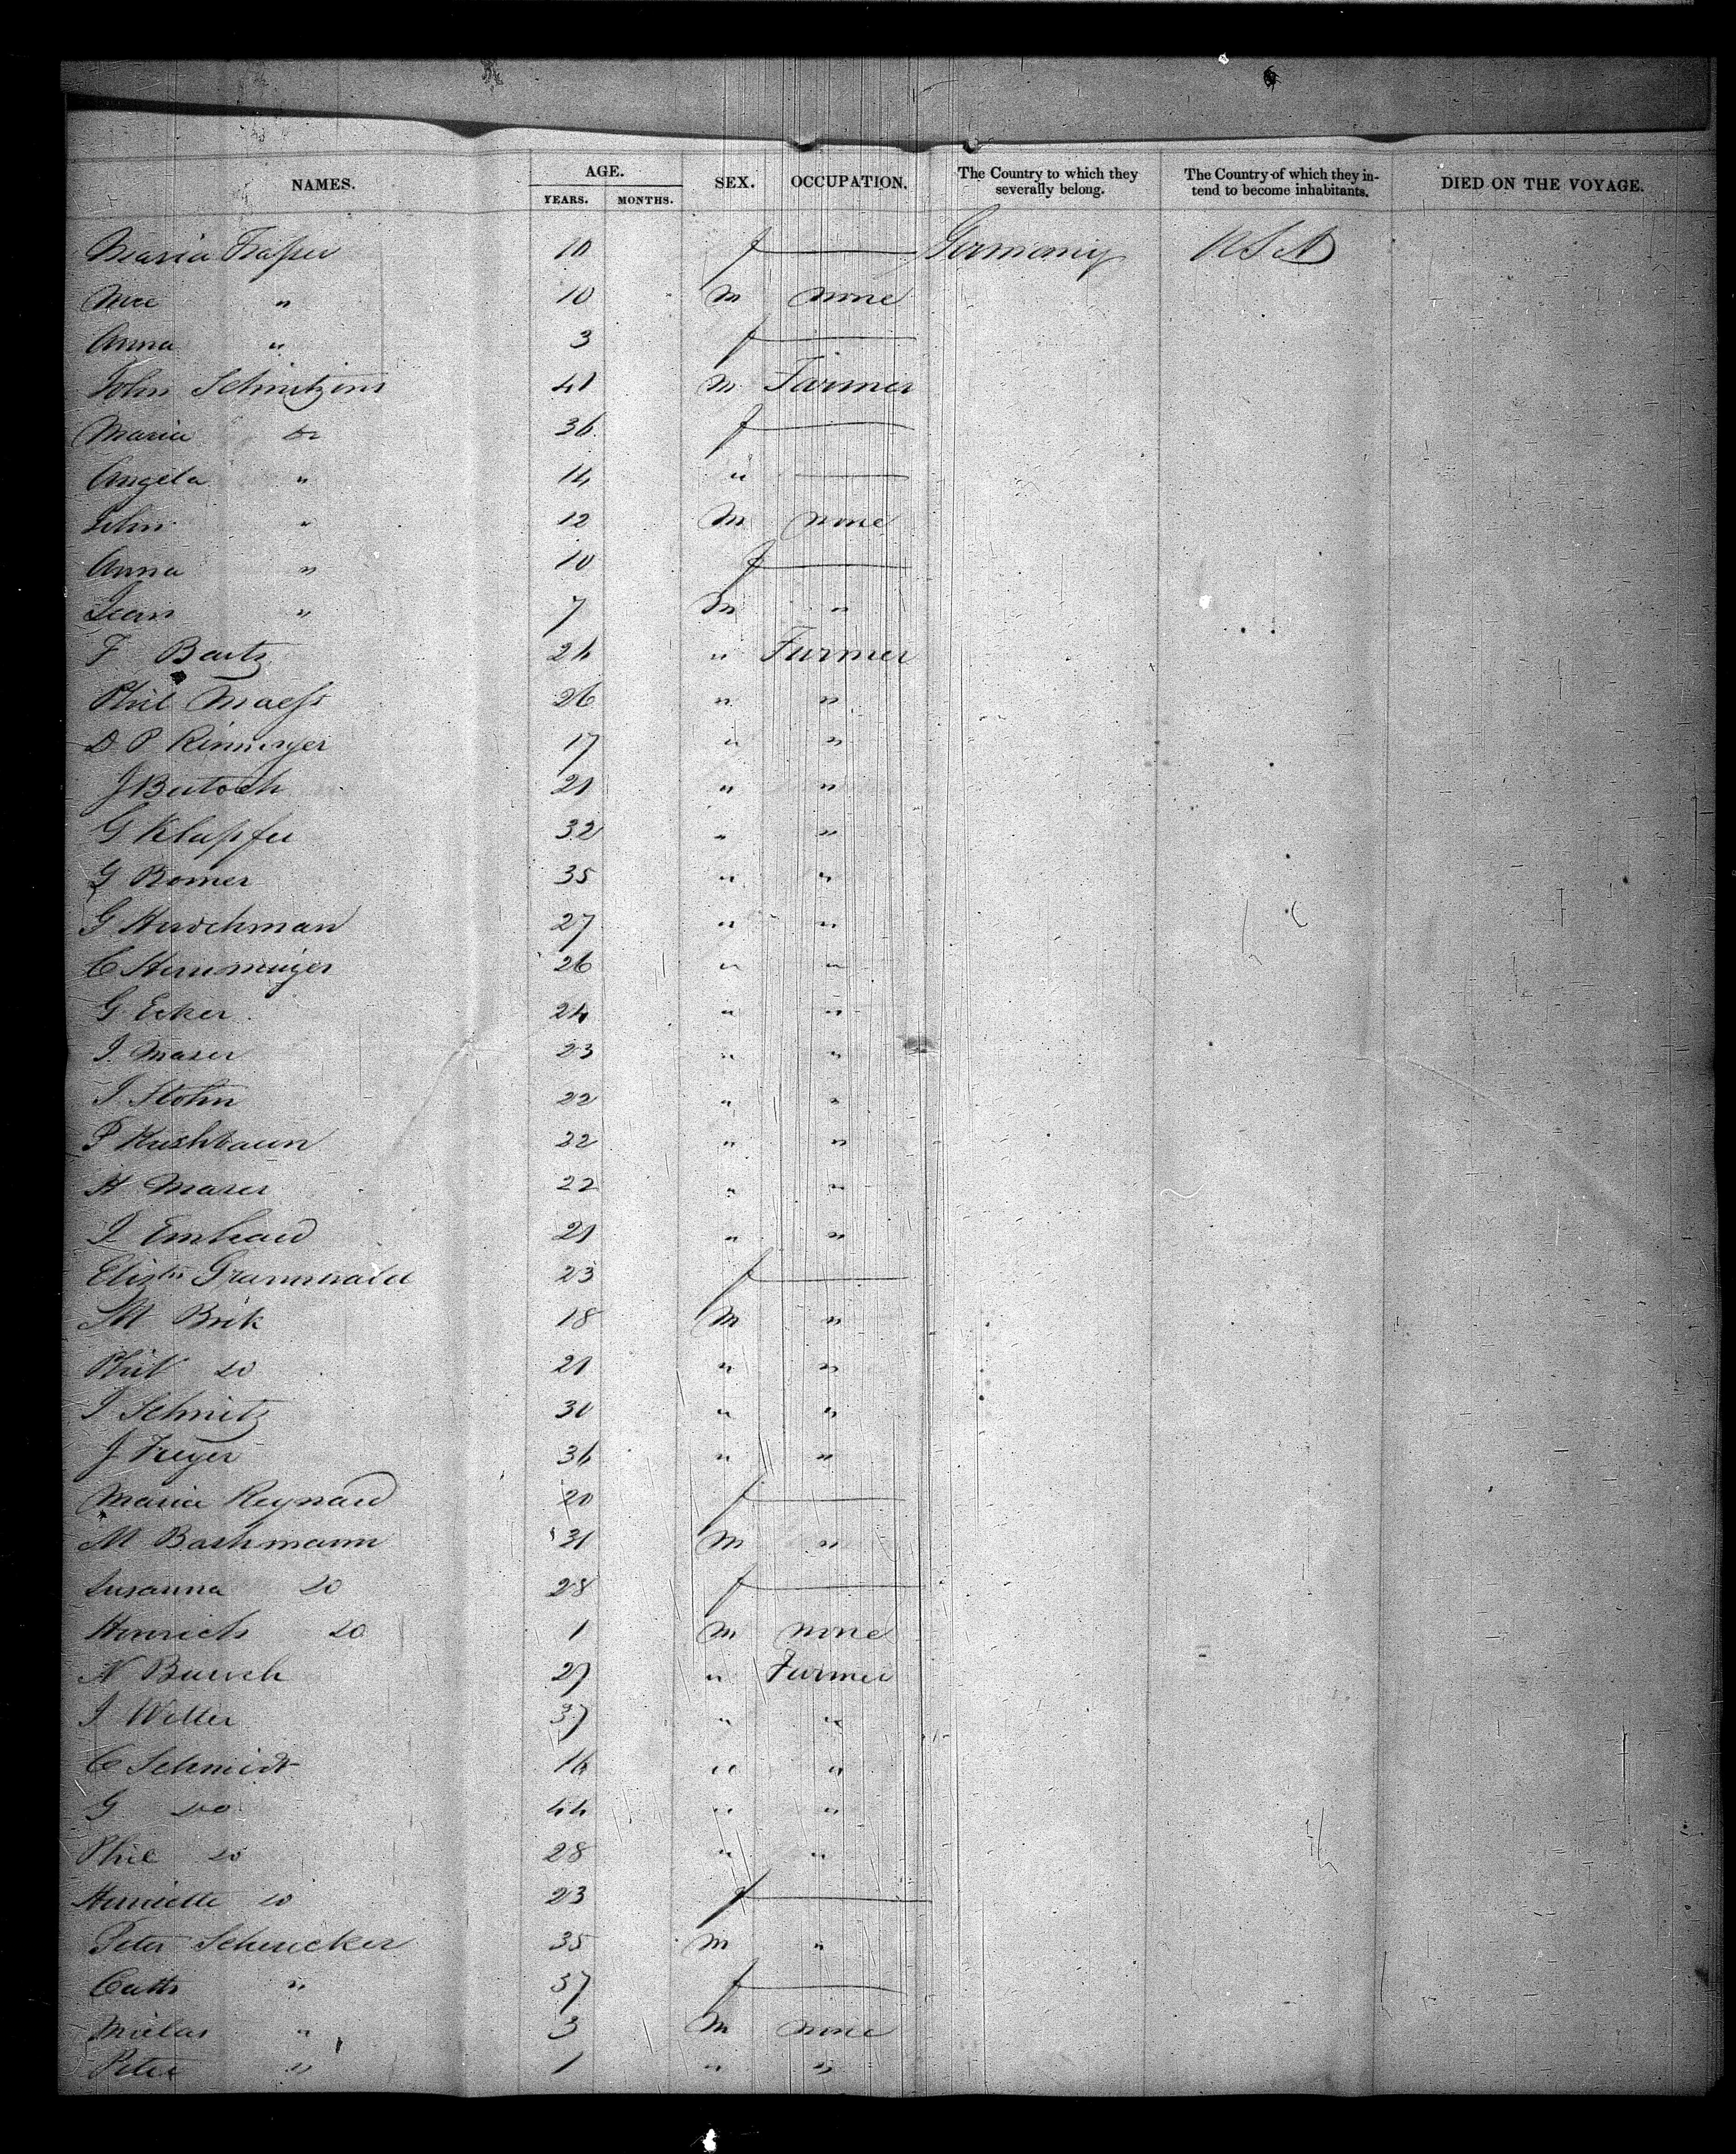 NAMES. AGE. SEX. OCCUPATION. The Country to which they severally belong. The Country of which they intend to become inhabitants. DIED ON THE VOYAGE.
YEARS. MONTHS.
Maria 10 f — Germany U S A
" 10 m none
Anna " 3 f —
John 41 m Farmer
Maria do 36 f —
Angela " 14 " —
John " 12 m none
Anna " 10 f —
Jean " 7 m "
F Bartz 24 " Farmer
Phil Maess 26 " "
D P 17 " "
J 21 " "
G Klapfer 32 " "
G Romer 35 " "
G Hirschman 27 " "
C 26 " "
G Ecker 24 " "
I Maser 23 " "
I Stohn 22 " "
P 22 " "
H Maser 22 " "
I 21 " "
Elisth Grunnwald 23 f —
M Brik 18 m "
Phil do 21 " "
I Schmitz 30 " "
J Freyer 36 " "
Maria Reynard 20 f —
M Bashmann 31 m "
Susanna do 28 f —
Henrich do 1 m none
N 27 " Farmer
I Welter 37 " "
C Schmidt 16 " "
G do 44 " "
Phil do 28 " "
Henriette do 23 f —
Peter Schericker 35 m "
Cath " 37 f —
" 3 m none
Peter " 1 " "